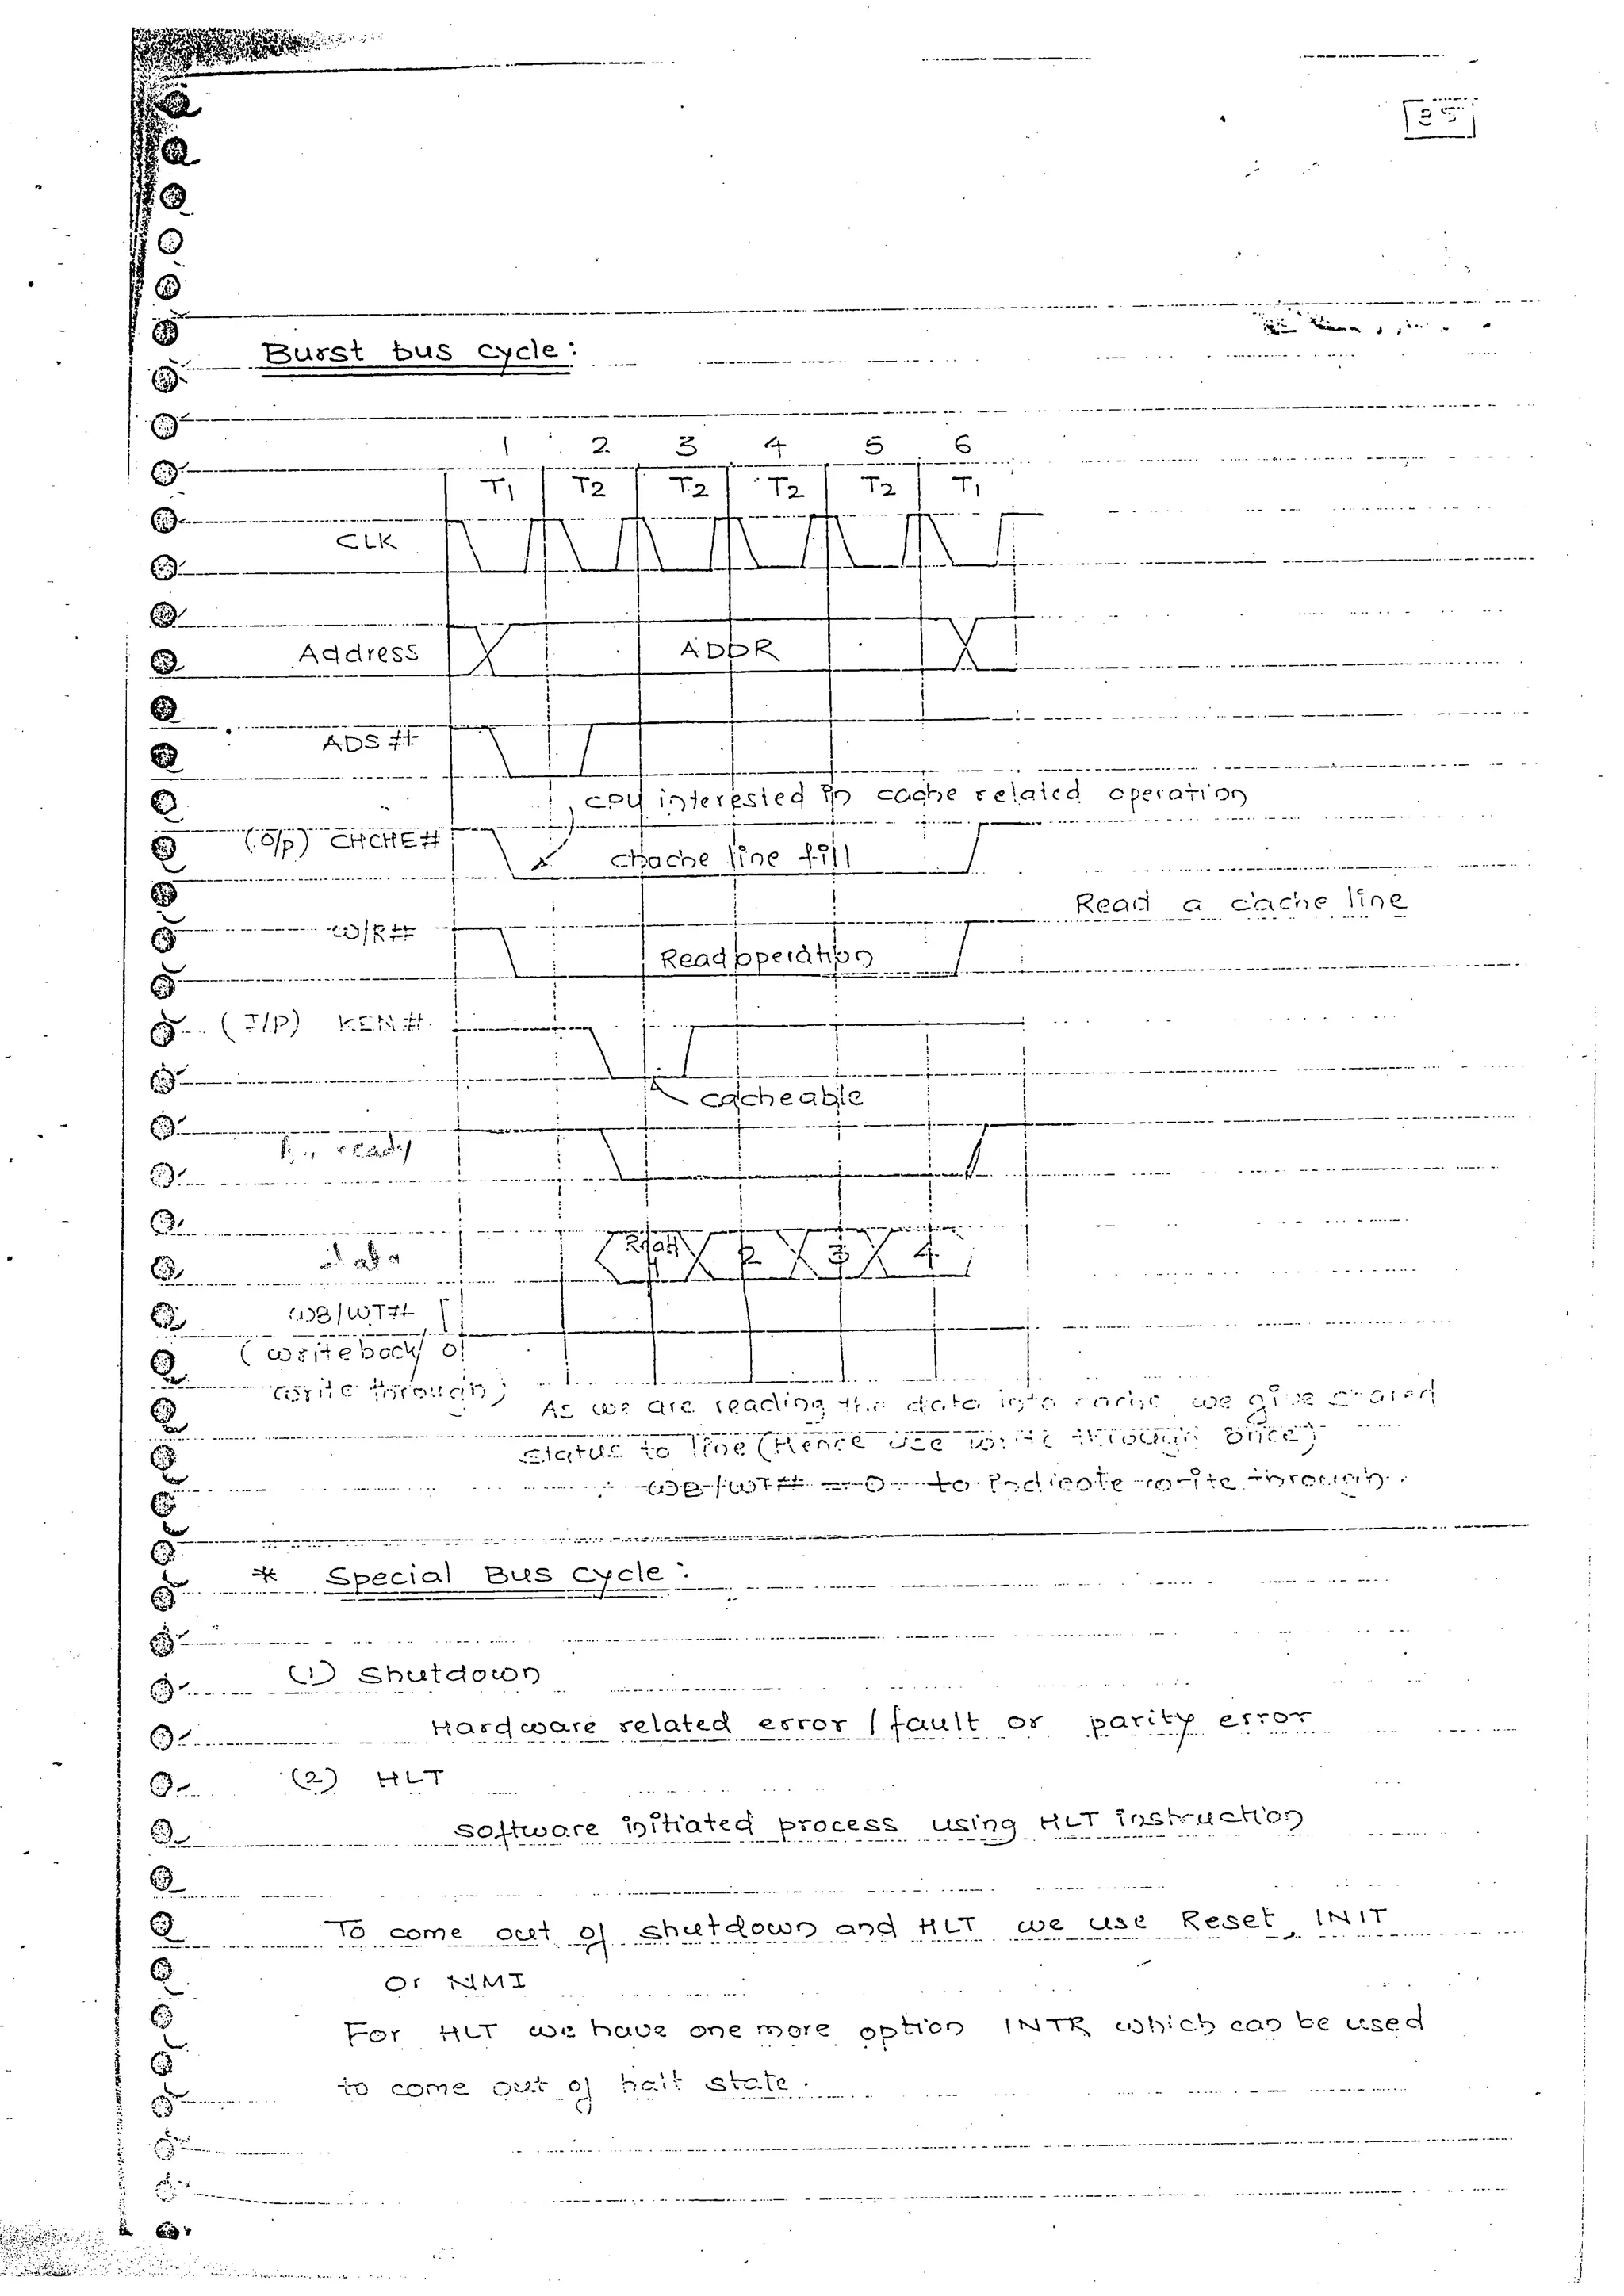 25
Burst bus cycle:
1 2 3 4 5 6
T1 T2 T2 T2 T2 T1
CLK
Address ADDR
ADS #
CPU interested in cache related operation
(O/p) CHCHE#
Chache line fill
Read a cache line
W/R#
Read operation
(I/P) KEN #
cacheable
ready
data Read 2 3 4
WB/WT#
(write back/ of
write through)
As we are reading the data into cache we give shared
status to line (Hence use write through once)
WB/WT# = 0 to indicate write through.
* Special Bus cycle:
(1) Shutdown
Hardware related error / fault or parity error
(2) HLT
software initiated process using HLT instruction
To come out of shutdown and HLT we use Reset, INIT
or NMI
For HLT we have one more option INTR which can be used
to come out of halt state.